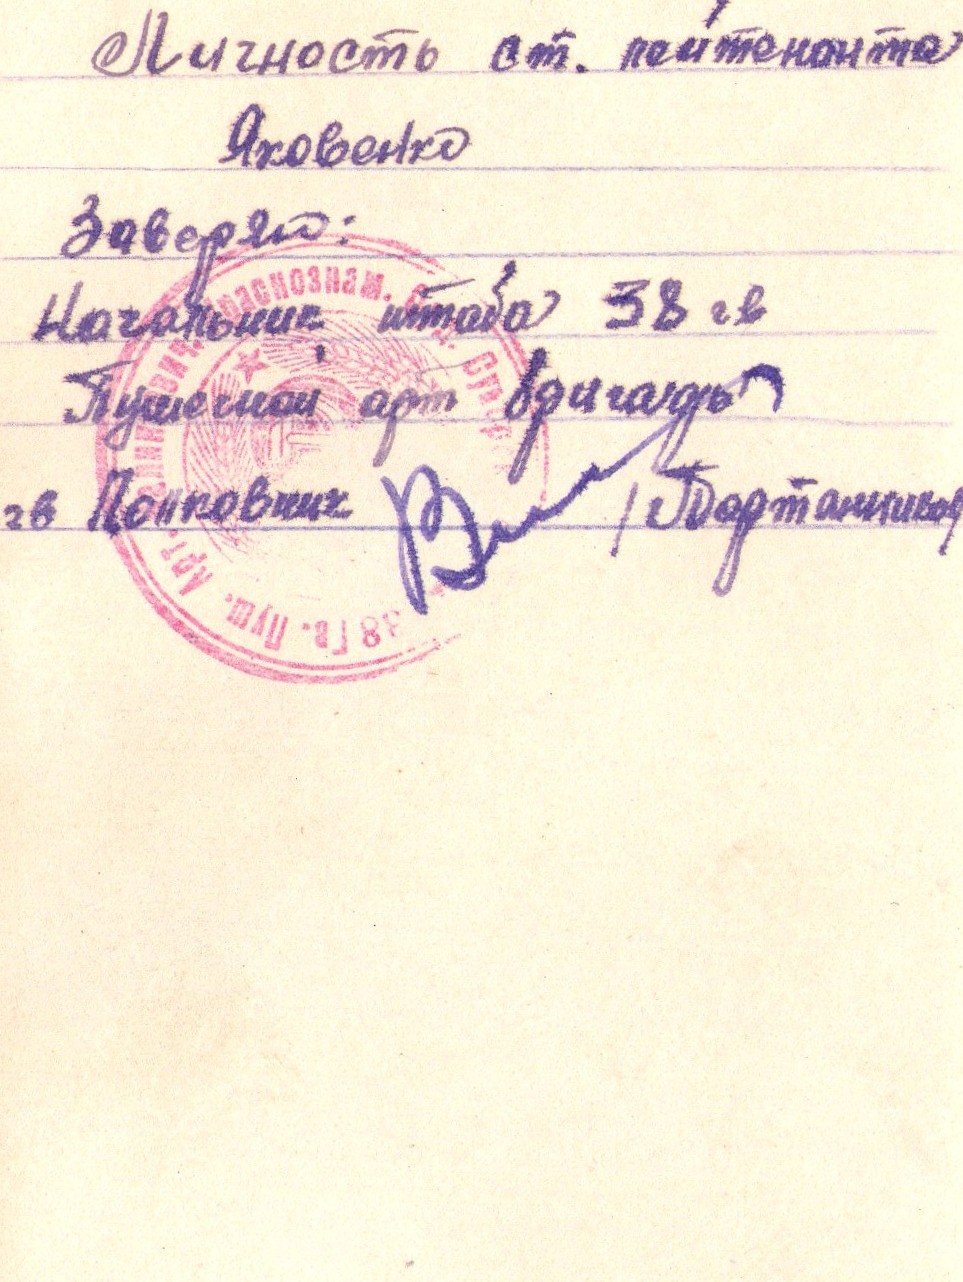 Личность ст. лейтенанта
Яковенко
Заверяю:
Начальник штаба 38 гв
Пушечной арт бригады
гв Полковник
Краснознам.
38 Гв. Пуш. Арт.